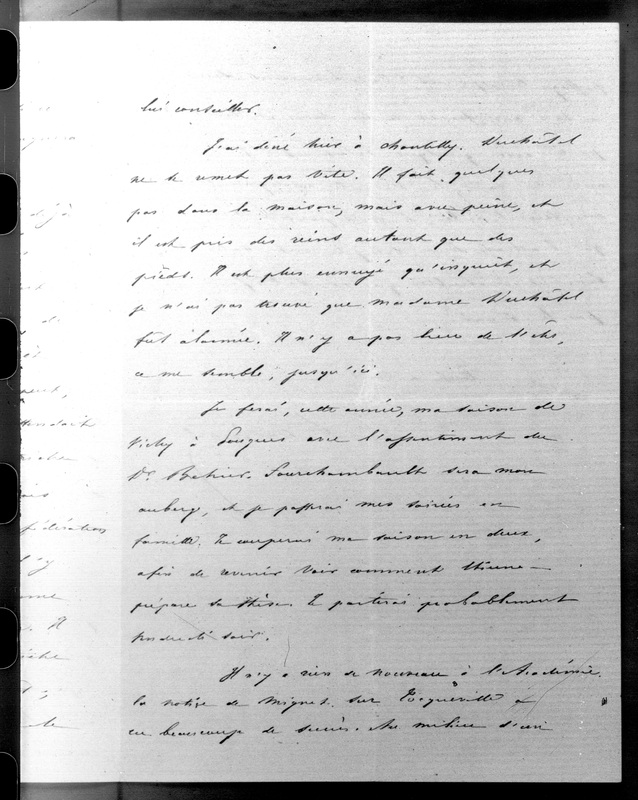 lui conseiller.
J'ai diné hier à Chantilly. Duchâtel
ne se remet pas vite. Il fait quelques
pas dans la maison, mais avec peine, et
il est pris des reins autant que des
pieds. Il est plus ennuyé qu'inquiet, et
je n'ai pas trouvé que madame Duchâtel
fût alarmée. Il n'y a pas lieu de l'être,
ce me semble, jusqu'ici.
Je ferai, cette année, ma saison de
Vichy à Pougues avec l'assentiment du
Dr. Fourchambault sera mon
auberge, et je passerai mes soirées en
famille. Je couperai ma saison en deux,
afin de revenir voir comment
prépare sa thèse. Je partirai probablement
soir.
Il n'y a rien de nouveau à l'Académie.
la notice de Mignet sur Tocqueville a
eu beaucoup de succès. Au milieu d'un